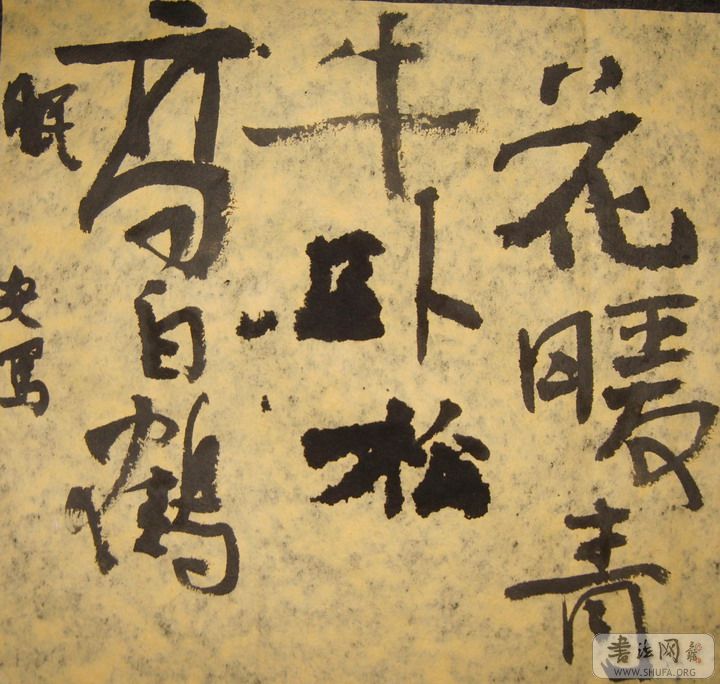 花暖青
牛卧松
高白鹤
眠
史写
書法网
WWW.SHUFA.ORG